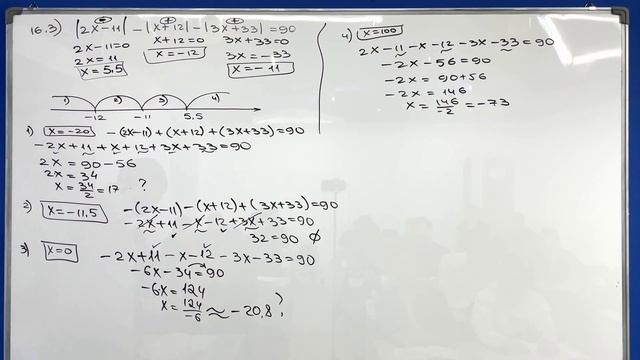 16.3) |2x-11| - |x+12| - |3x+33| = 90
2x-11=0 x+12=0 3x+33=0
2x=11 x=-12 3x=-33
x=5,5 x=-11
1) 2) 3) 4)
-12 -11 5,5
1) x=-20 -(2x-11)+(x+12)+(3x+33)=90
-2x+11+x+12+3x+33=90
2x=90-56
2x=34
x=34/2=17 ?
2) x=-11,5 -(2x-11)-(x+12)+(3x+33)=90
-2x+11-x-12+3x+33=90
32=90 ∅
3) x=0 -2x+11-x-12-3x-33=90
-6x-34=90
-6x=124
x=124/-6≈-20,8
4) x=100
2x-11-x-12-3x-33=90
-2x-56=90
-2x=90+56
-2x=146
x=146/-2=-73